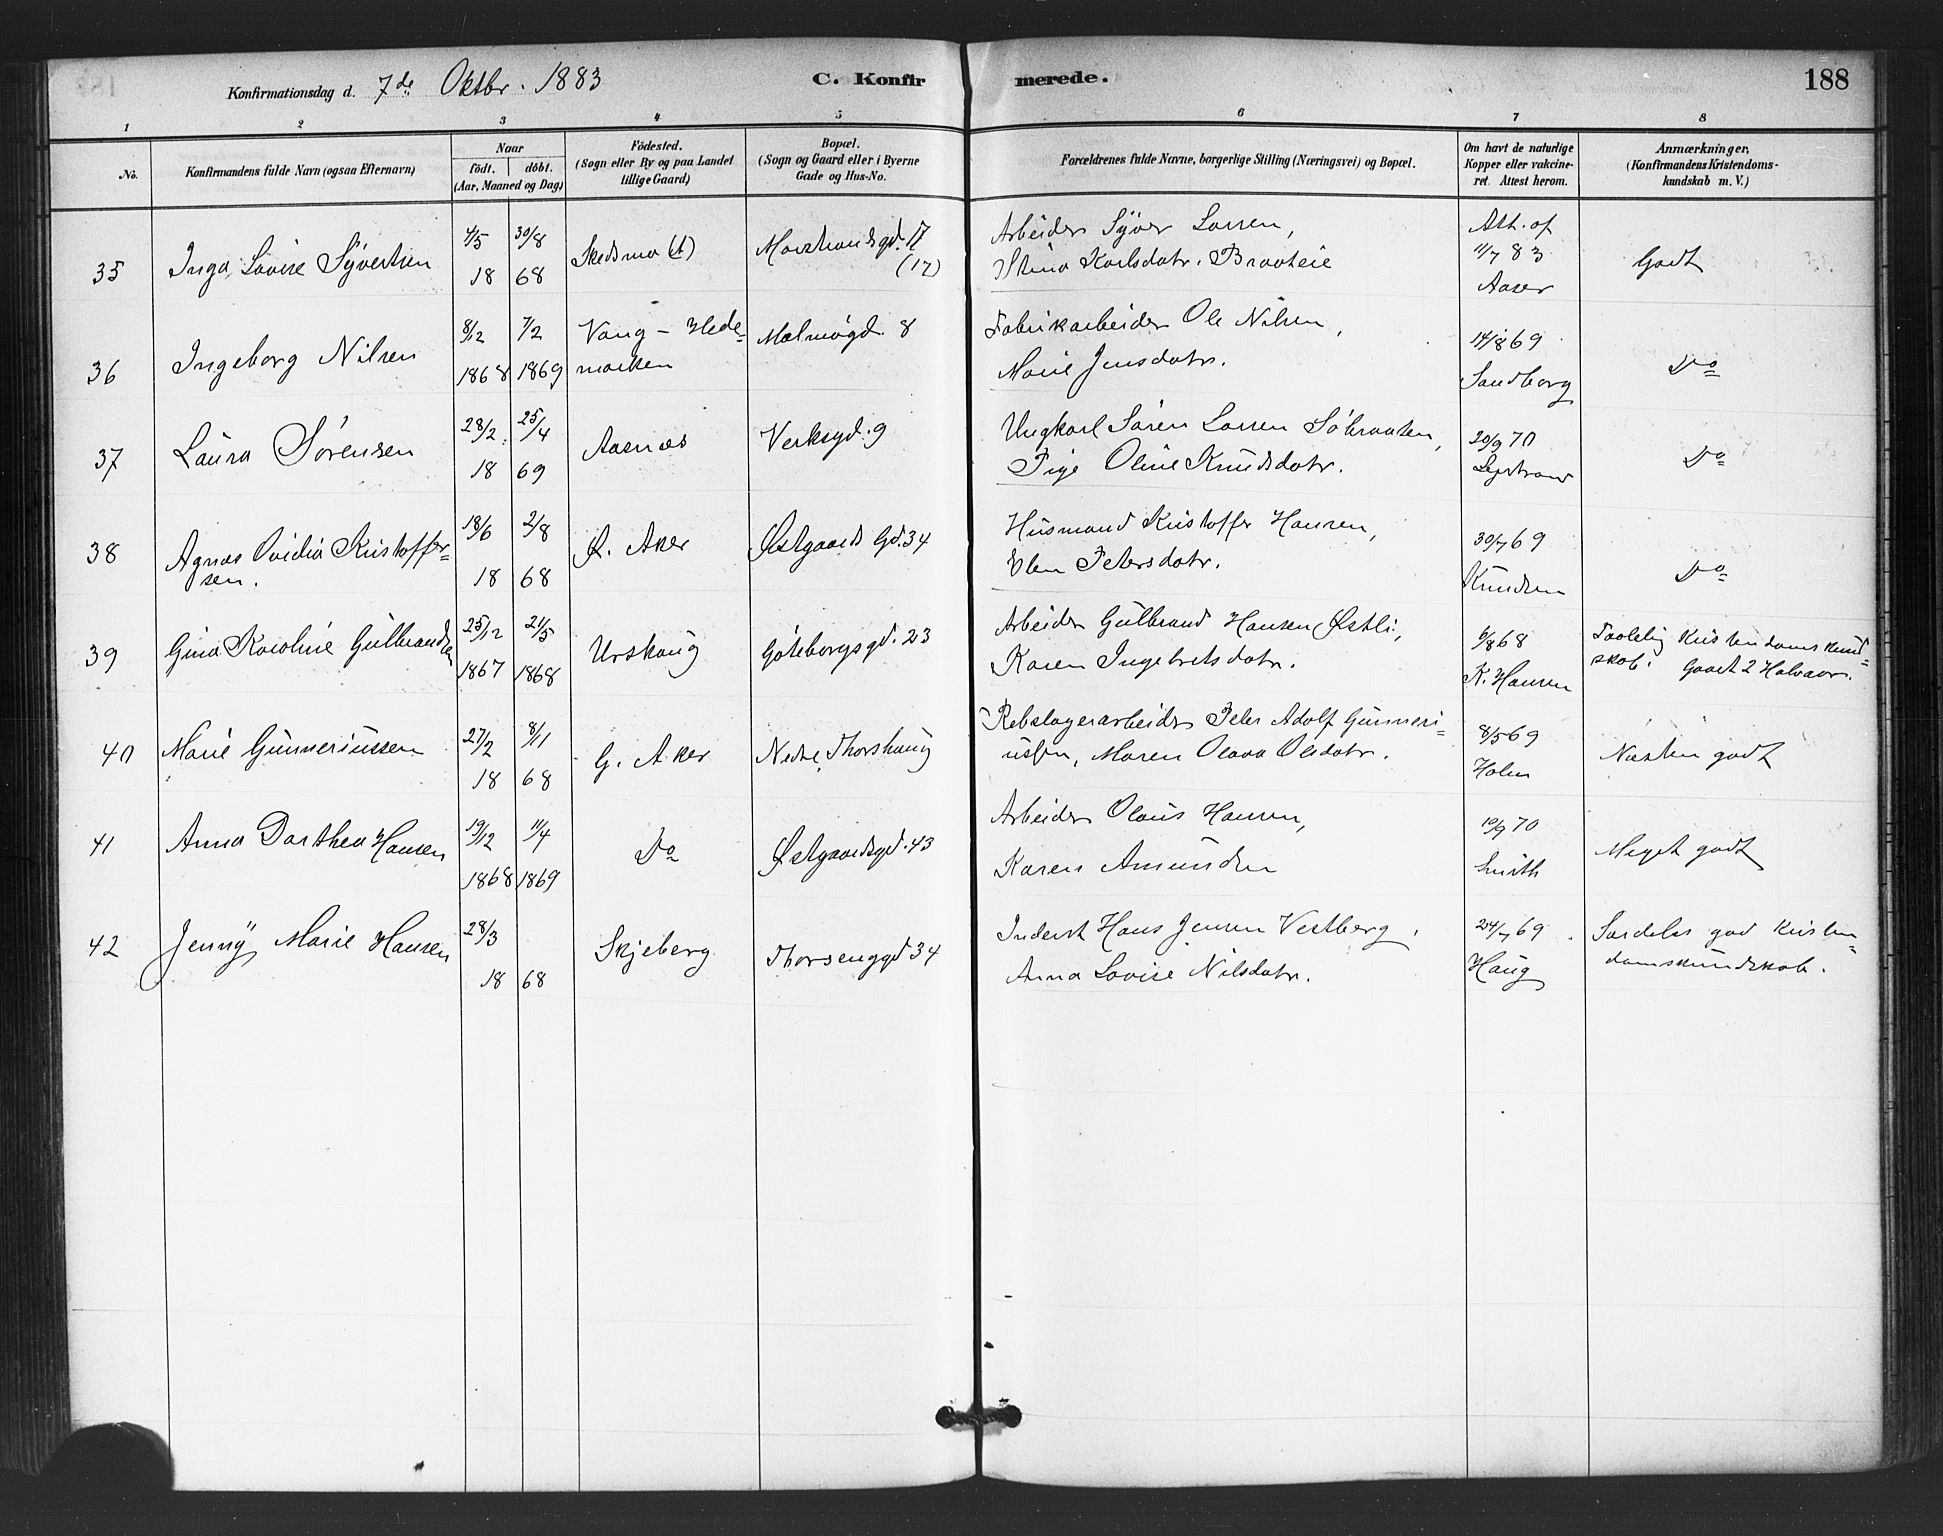 Konfirmationsdag d. 7de Oktbr. 1883 C. Konfirmerede. 188
1 2 3 4 5 6 7 8
No. Konfirmandens fulde Navn (ogsaa Efternavn) Naar födt. döbt. (Aar, Maaned og Dag) Födested. (Sogn eller By og paa Landet tillige Gaard) Bopæl. (Sogn og Gaard eller i Byerne Gade og Hus-No. Forældrenes fulde Navne, borgerlige Stilling (Næringsvei) og Bopæl. Om havt de naturlige Kopper eller vakcineret. Attest herom. Anmærkninger, (Konfirmandens Kristendomskundskab m. V.)
35 Inga Lovise Syvertsen 4/5 30/8 18 68 Skedsmo Marstrandsgd. 17 (17)
Arbeider Syver Larsen,
Stina Karlsdatr. Braateie
Att. af 11/7 83 Aaser
Godt
36 Ingeborg Nilsen 8/12 7/2 1868 1869 Vang - Hedemarken Malmøgd. 8
Fabrikarbeider Ole Nilsen,
Marie Jensdatr.
14/8 69 Sandborg
Do
37 Laura Sørensen 28/2 25/4 18 69 Aasnæs Verksgd. 9
Ungkarl Søren Larsen Søbraaten,
Pige Oline Knudsdatr.
20/9 70
Do
38 Agnes Ovidia Kristoffersen. 18/6 2/8 18 68 Ø. Aker Østgaards Gd. 34
Husmand Kristoffer Hansen,
Elen Petersdatr.
30/7 69 Knudsen
Do
39 Gina Karoline Gulbrandsen 25/12 21/5 1867 1868 Urskoug Göteborgsgd. 23
Arbeider Gulbrand Hansen Østli,
Karen Ingebretsdatr.
6/8 68 K. Hansen
Taalelig Kristendomskundskab. Gaaet 2 Halvaar.
40 Marie Gunneriussen 27/2 8/11 18 68 G. Aker Nedre Thorshaug
Rebslagerarbeider Peter Adolf Gunneriussen, Maren Olava Olsdatr.
8/5 69 Holm
Næsten godt
41 Anna Dorthea Hansen 19/12 11/4 1868 1869 Do Østgaardsgd. 43
Arbeider Olaus Hansen,
Karen Amundsen
19/9 70 Smith
Meget godt
42 Jenny Marie Hansen 28/3 18 68 Skjeberg Thorsenggd 34
Inderst Hans Jensen Vestberg,
Anna Lovise Nilsdatr.
24/7 69. Haug
Særdeles god Kristendomskundskab.